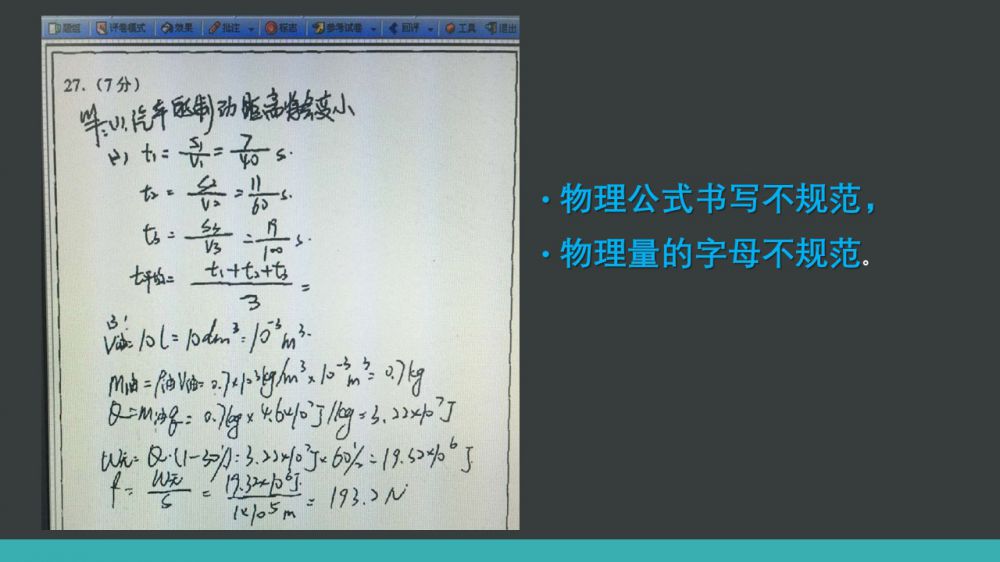 题组 评卷模式 效果 批注 标志 参考试卷 回评 工具 退出
27.（7分）
解:(1).汽车的制动距离将会变小
(2) t₁= S₁/V₁ = 7/40 s.
t₂= S₂/V₂ = 11/60 s.
t₃= S₃/V₃ = 19/100 s.
t平均= t₁+t₂+t₃/3 =
V油=10L=10dm³=10⁻³m³.
m油=ρ油V油=0.7×10³kg/m³×10⁻³m³=0.7kg
Q=m油q=0.7kg×4.6×10⁷J/kg=3.22×10⁷J
=3.22×10⁷J×60%=19.32×10⁶J
f= W元/S = 19.32×10⁶J/1×10⁵m = 193.2N
• 物理公式书写不规范，
• 物理量的字母不规范。